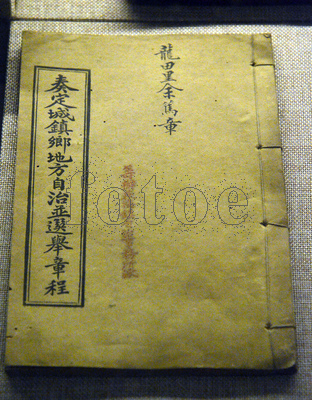 龍田里余萬章
奏定城鎮鄉地方自治並選舉章程
fotoe